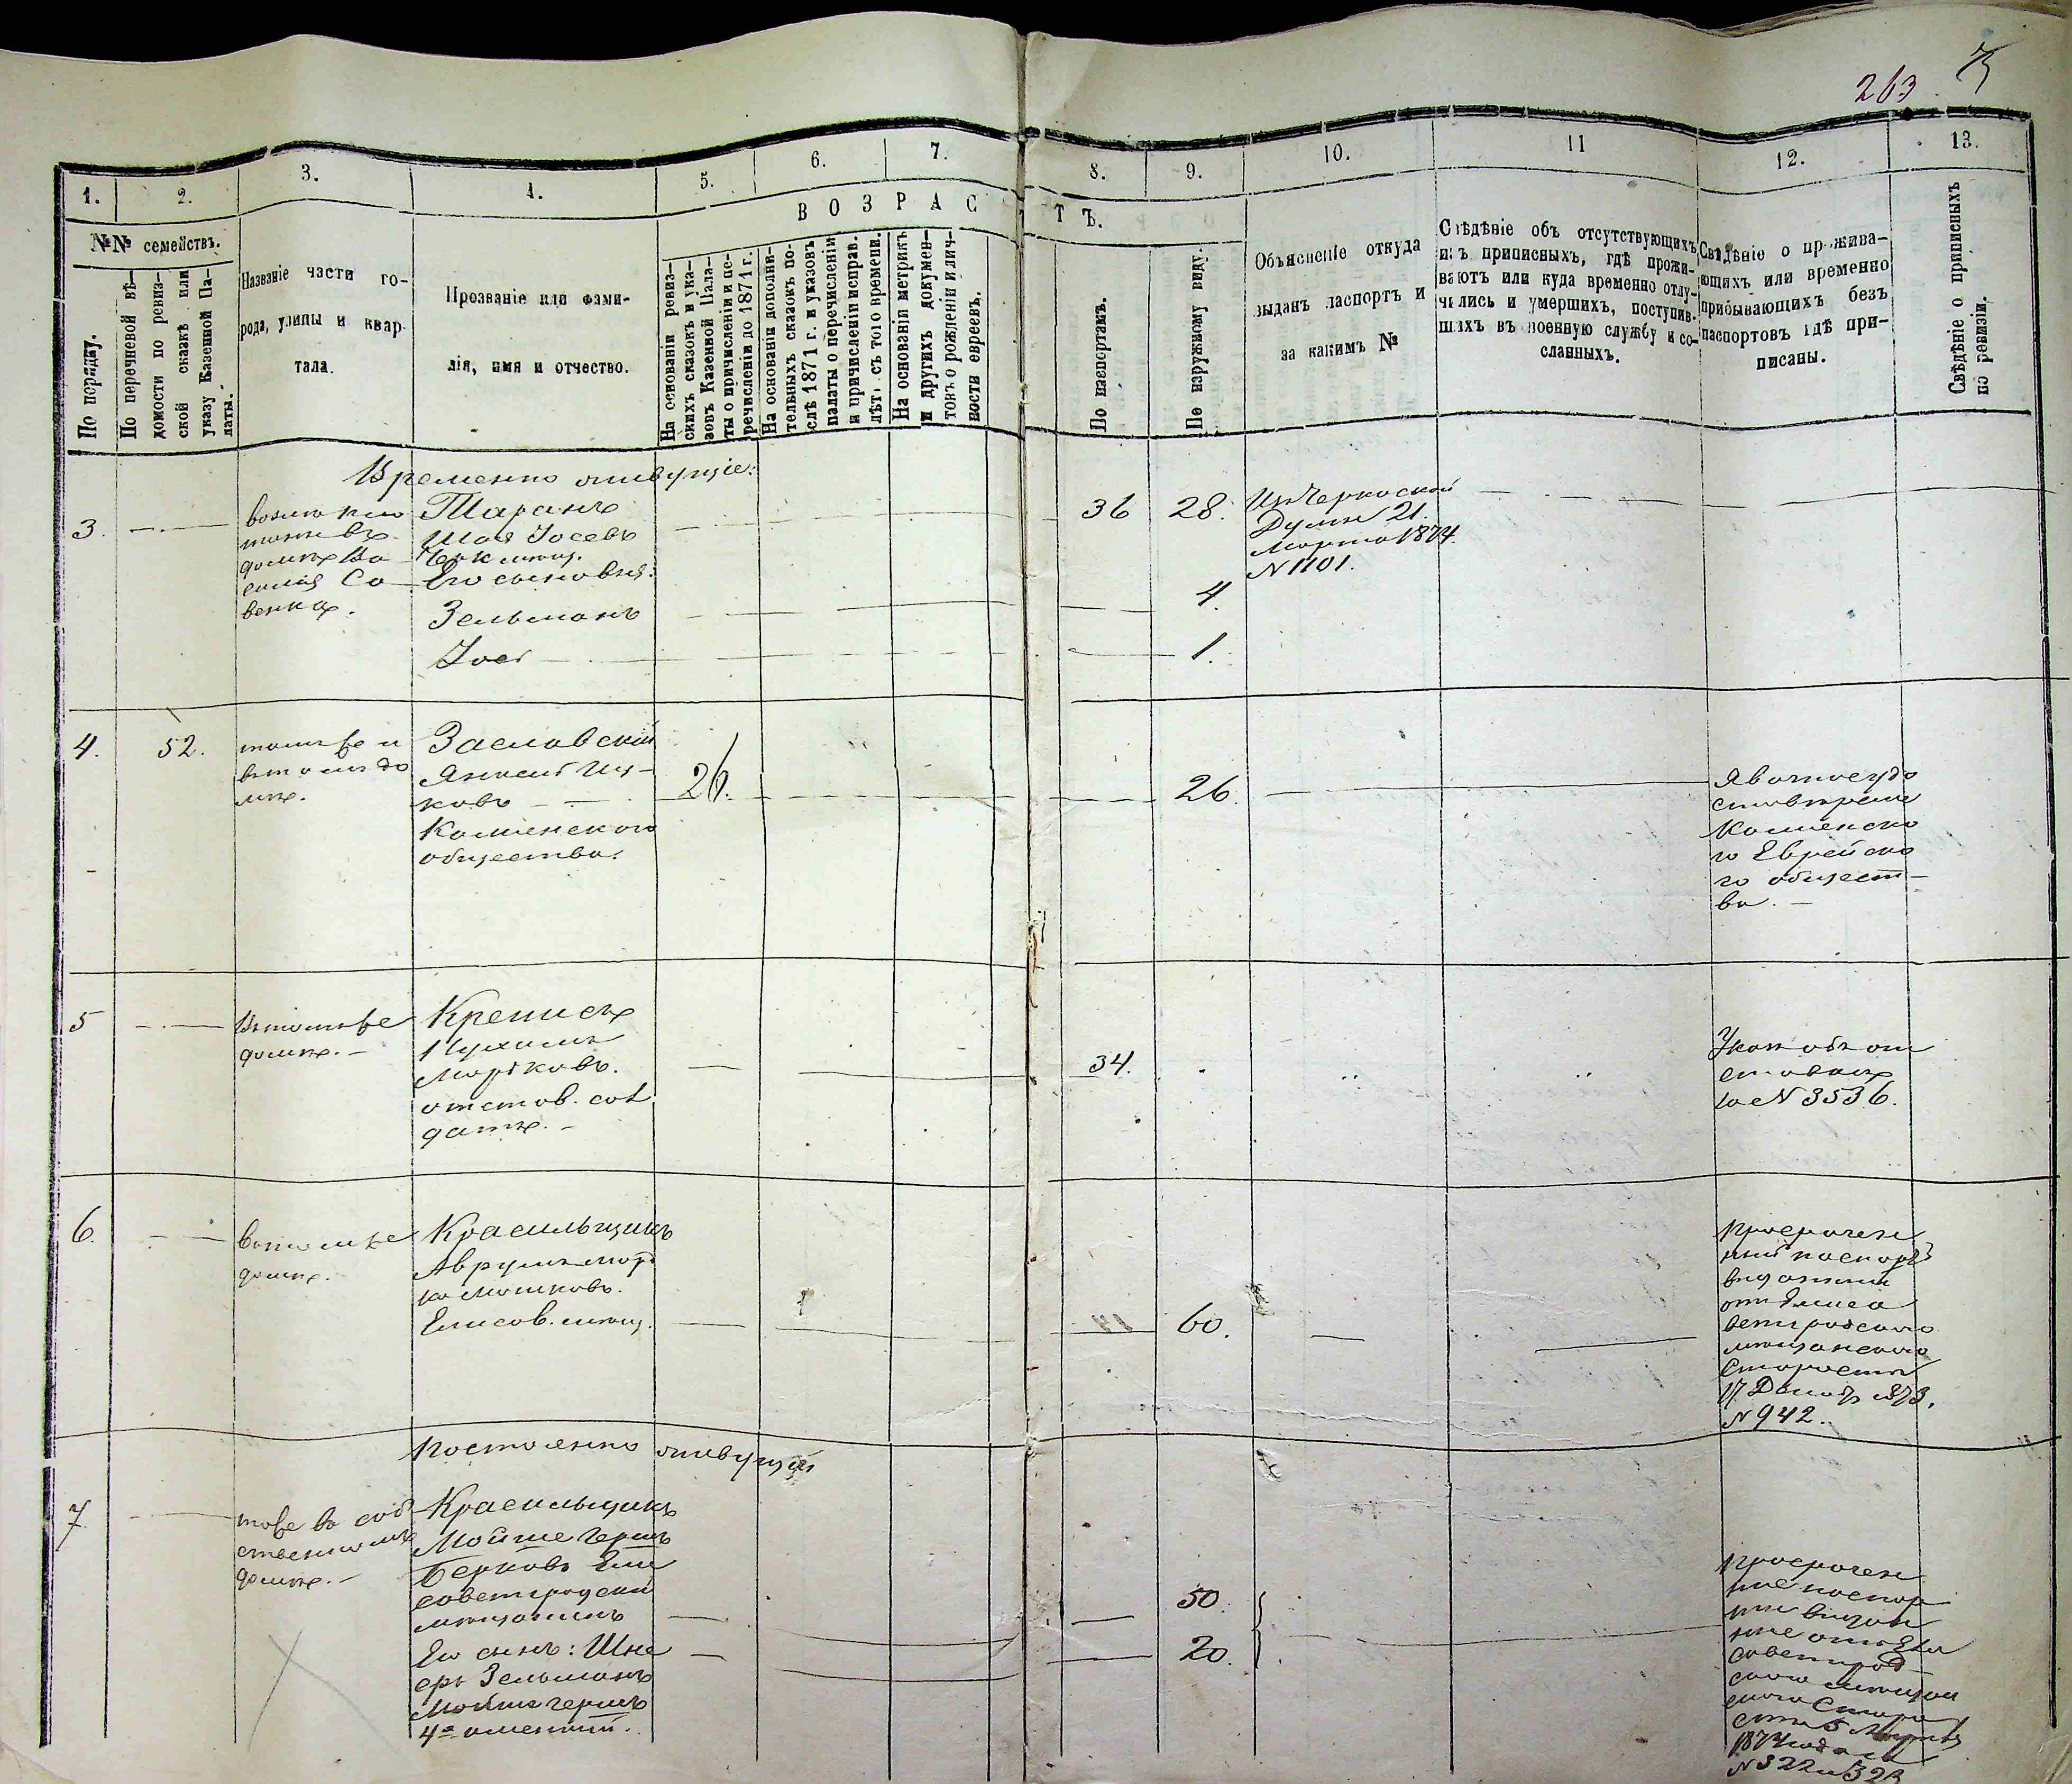 263
1.
2.
3.
4.
5.
6.
7.
8.
9.
10.
11
12.
13.
№№ семействъ.
По порядку.
По перечневой вѣ-
домости по ревиз-
ской сказкѣ или
указу Казенной Па-
латы.
Названіе части го-
рода, улицы и квар-
тала.
Прозваніе или фами-
лія, имя и отчество.
ВОЗРАСТЪ.
На основаніи ревиз-
скихъ сказокъ и ука-
зовъ Казенной Пала-
ты о причисленіи и пе-
речисленіи до 1871 г.
На основаніи дополни-
тельныхъ сказокъ по-
слѣ 1871 г. и указовъ
палаты о перечисленіи
и причисленіи исправ.
лѣт. съ того времени.
На основаніи метрикъ
и другихъ докумен-
товъ о рожденіи и лич-
ности евреевъ.
По паспортамъ.
По наружному виду.
Объясненіе откуда
выданъ паспортъ и
за какимъ №
Свѣдѣніе объ отсутствующихъ
изъ приписныхъ, гдѣ прожи-
ваютъ или куда временно отлу-
чились и умершихъ, поступив-
шихъ въ военную службу и со-
сланныхъ.
Свѣдѣніе о прожива-
ющихъ или временно
прибывающихъ безъ
паспортовъ гдѣ при-
писаны.
Свѣдѣніе о приписныхъ
по ревизіи.
Временно живущіе:
3.
домѣ Ва-
силія Са-
венка.
Таранъ
Шая Іосевъ
Черк. мѣщ.
Его сыновья:
Зельманъ
Іос
36
28.
4.
1.
Изъ Черкаской
Думы 21.
Марта 1874.
N 1101.
4.
52.
тамъ же и
въ томъ до
мѣ.
Заславскій
Янкель Иц-
ковъ
Каменскаго
общества.
26.
26.
Каменска
го Еврейска
го общест-
ва.
5
Въ томъ же
домѣ.
Креписъ
Нухимъ
Морѣковъ.
отстав. сол
датъ.
34.
Указъ объ от
ставкѣ
за N 3536.
6.
въ томъ же
домѣ.
Красильщикъ
Аврумъ Мор
ка Мошковъ.
Елисав. мѣщ.
60.
Просрочен
ный паспортъ
выданный
отъ Елиса
ветградскаго
мѣщанскаго
Старосты
17 Декабр 1873.
N 942.
Постоянно живущій
7
тоже въ соб
ственномъ
домѣ.
Красильщикъ
Мойше Гершъ
Берковъ Ели
саветградскій
мѣщанинъ
Его сынъ: Шне
еръ Зельманъ
Мойше Гершъ
4хъ именный.
50.
20.
Просрочен
ные паспор
ты выдан
ные отъ Ели
саветград-
скаго мѣщан
скаго Старо
сты 5 Марта
1874 года за
N 322 и 323